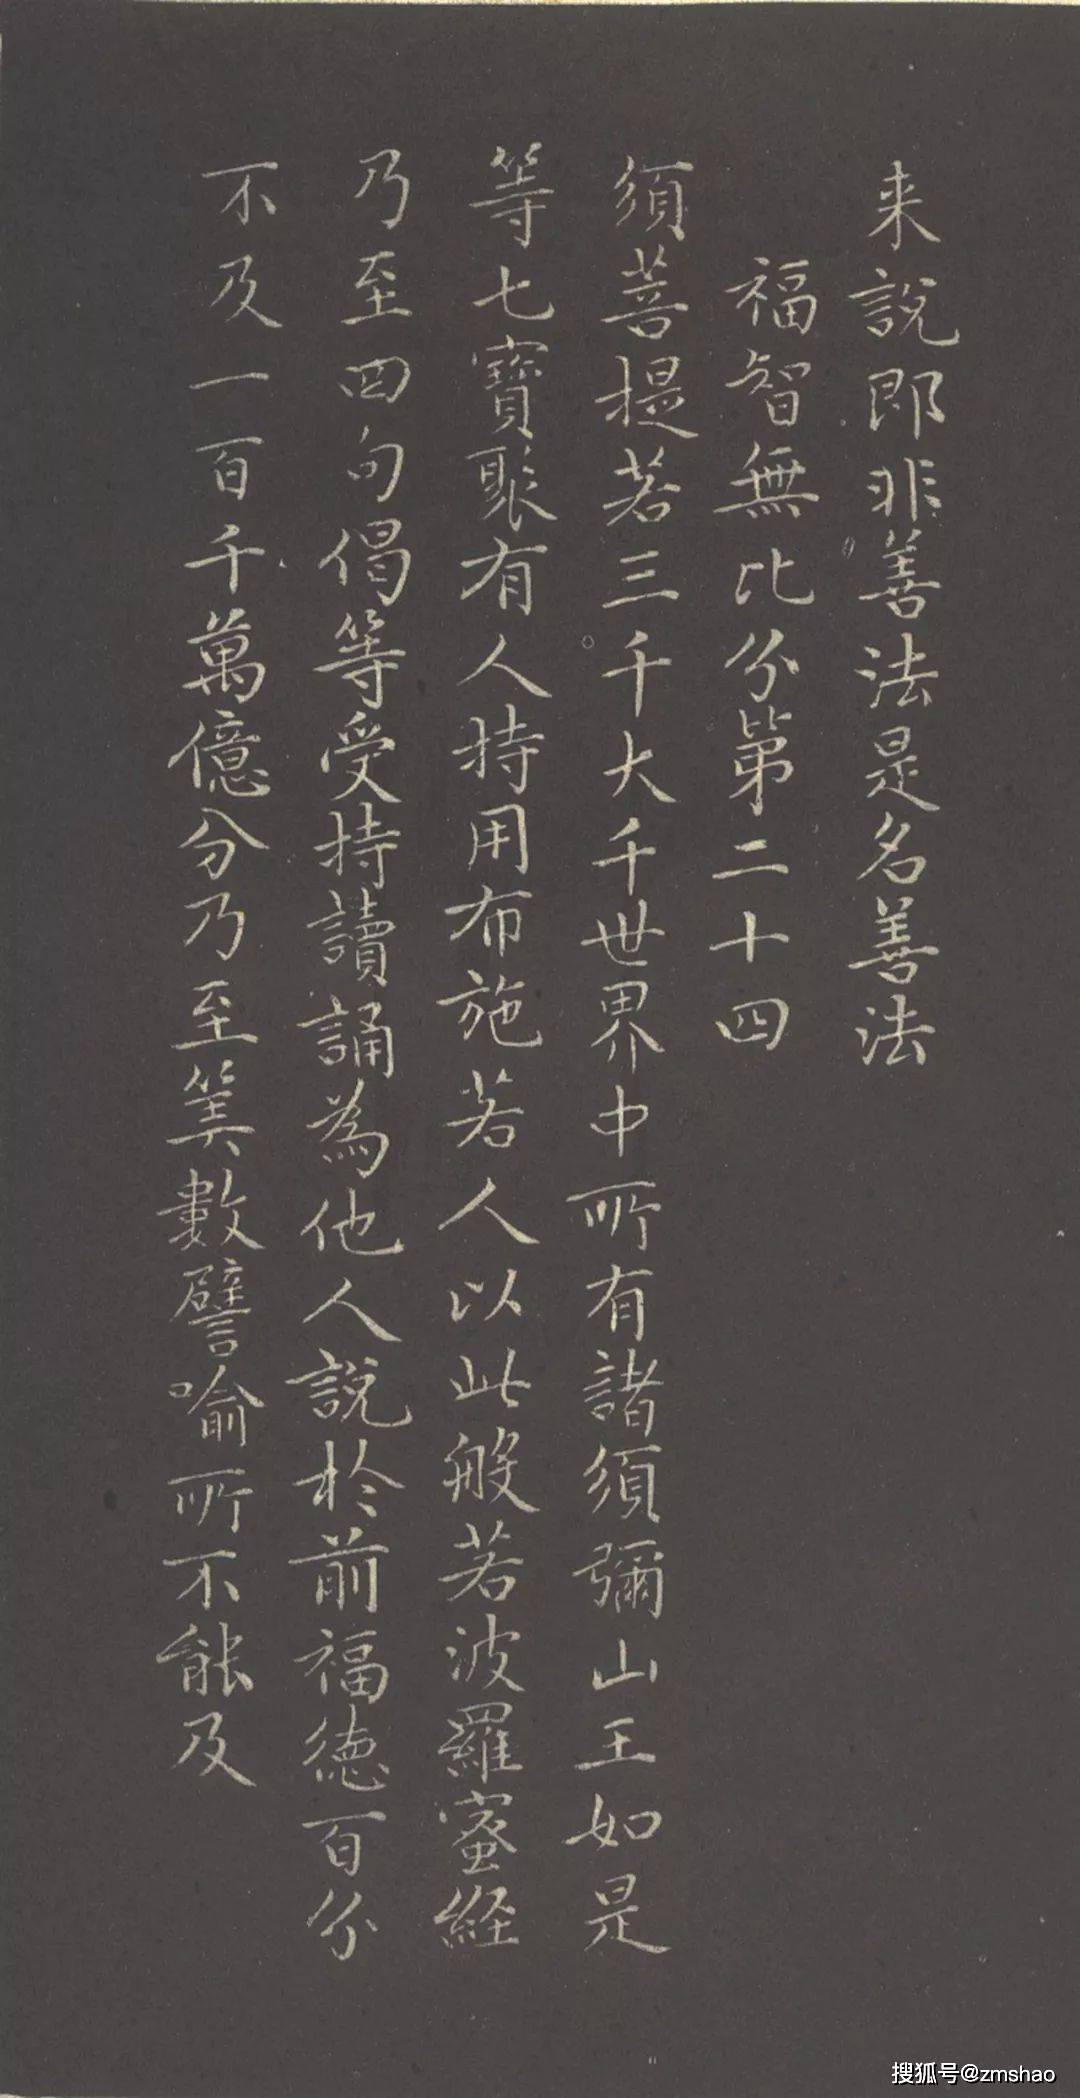 来說即非善法是名善法
福智無比分第二十四
須菩提若三千大千世界中所有諸須彌山王如是
等七寶聚有人持用布施若人以此般若波羅蜜経
乃至四句偈等受持讀誦為他人說於前福德百分
不及一百千萬億分乃至筭數譬喻所不能及
搜狐号@zmshao